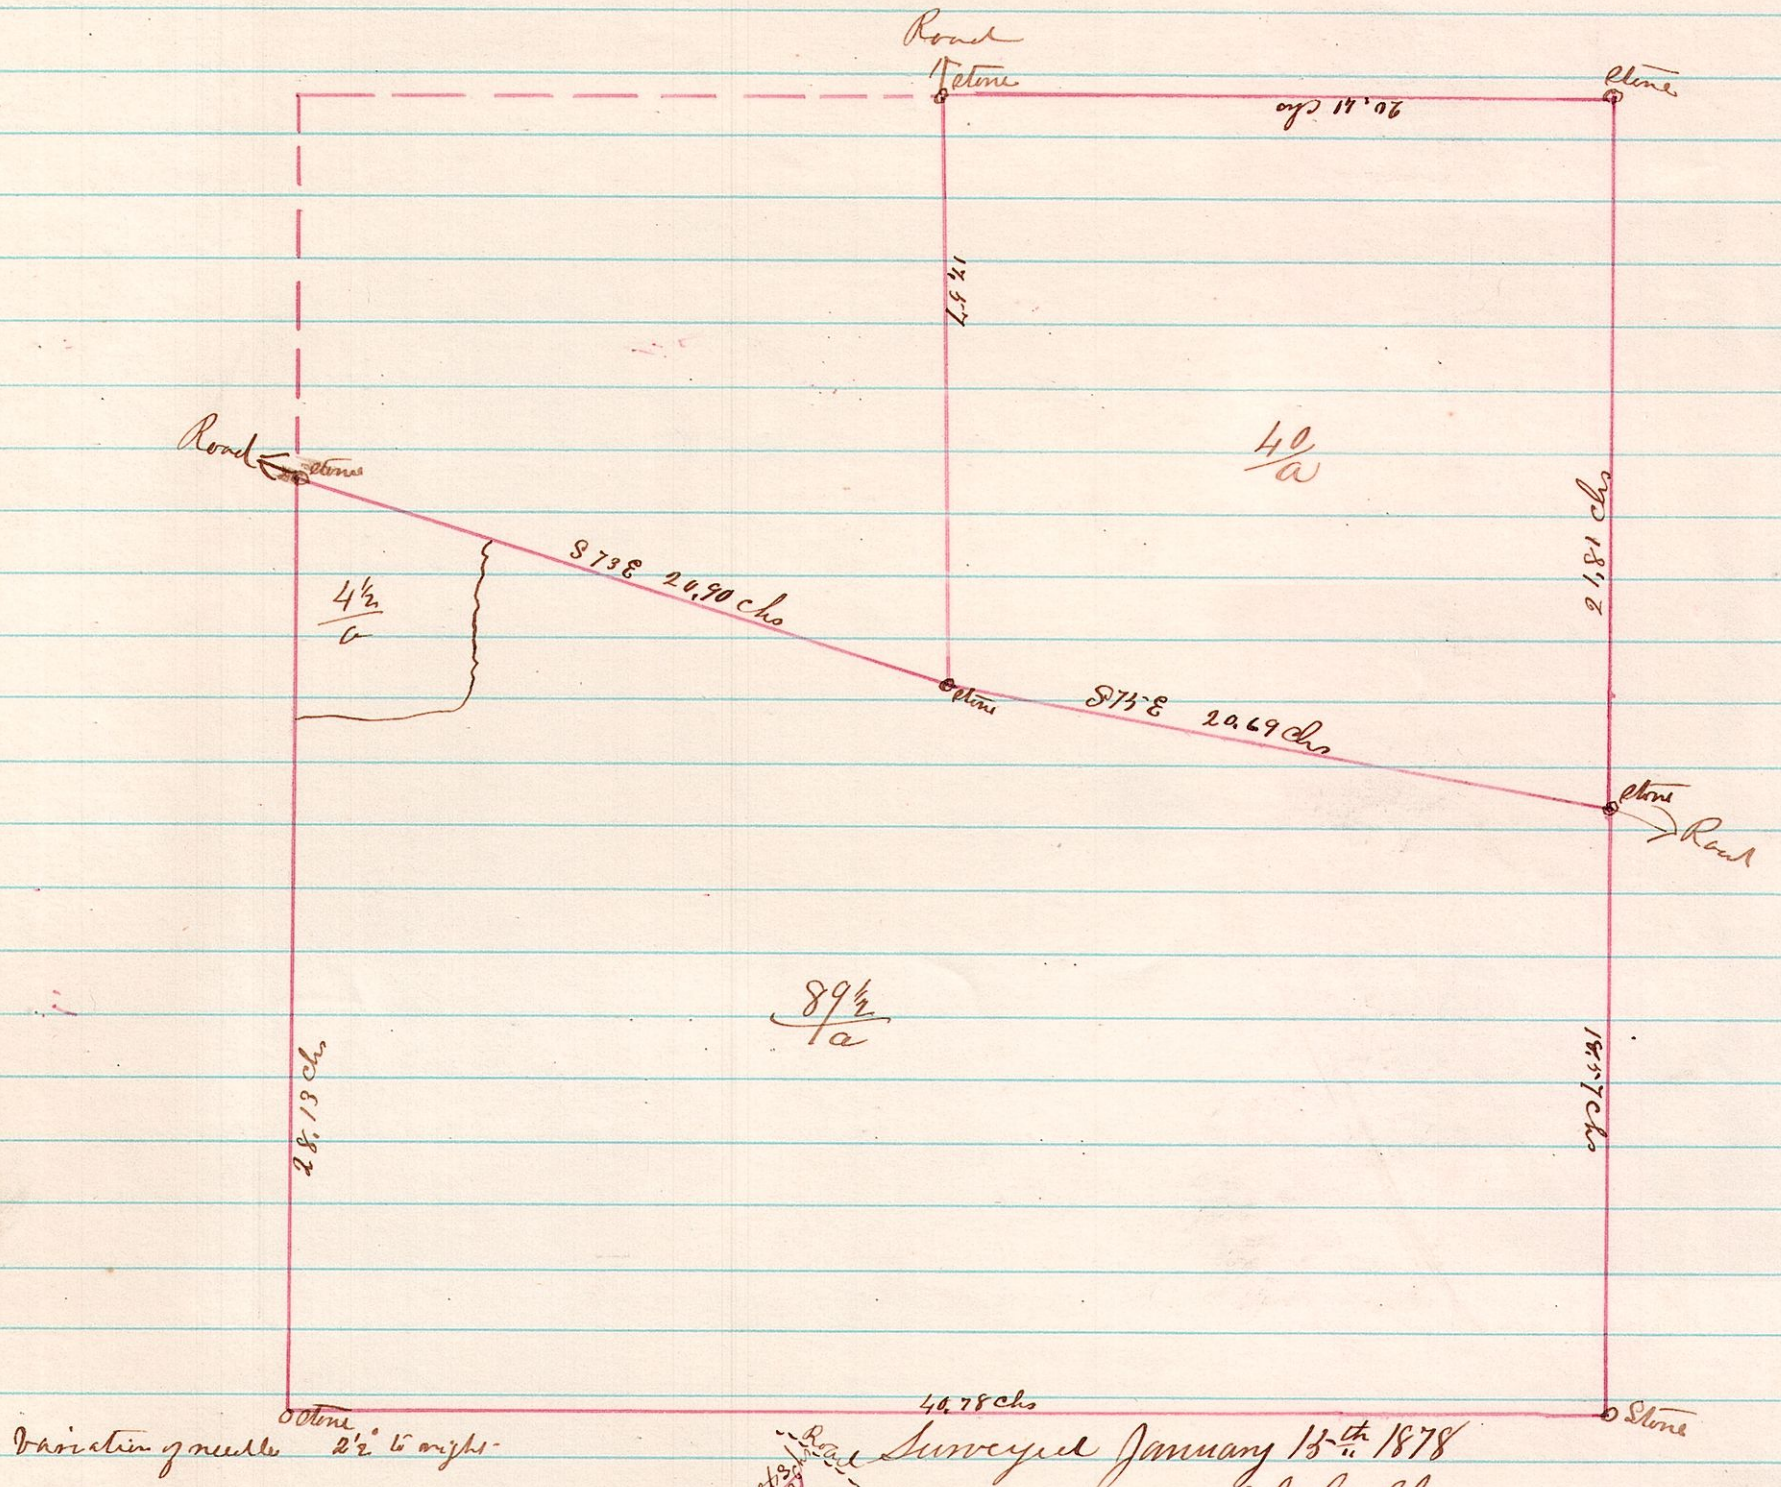 Road
stone
Stone
20,41 chs
17,57
Road
stone
40
a
21,81 chs
S 73 E 20,90 chs
4 1/2
a
stone
S 75 E 20,69 chs
stone
Road
89 1/2
a
28,13 chs
18,57 chs
40,78 chs
stone
Stone
Variation of needle 2 1/2° to right
Road
Surveyed January 15th 1878